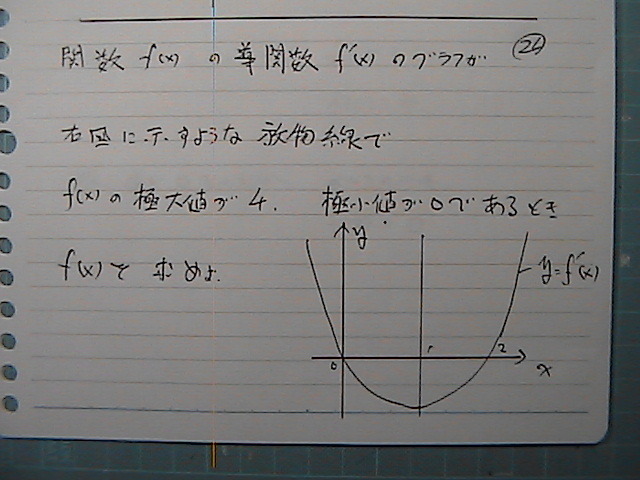 関数 f(x) の導関数 f'(x) のグラフが
㉖
右図に示すような放物線で
f(x) の極大値が 4. 極小値が 0 であるとき
f(x) を求めよ.
y
y=f'(x)
0 1 2
x